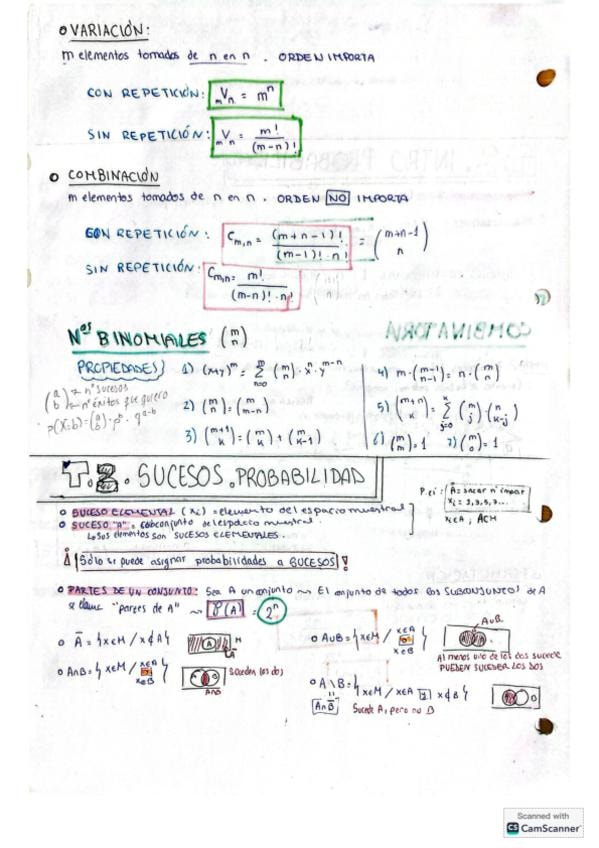 o VARIACIÓN:
m elementos tomados de n en n. ORDEN IMPORTA
CON REPETICIÓN: mVn = m^n
SIN REPETICIÓN: mVn = m! / (m-n)!
o COMBINACIÓN
m elementos tomados de n en n. ORDEN NO IMPORTA
CON REPETICIÓN: Cm,n = (m+n-1)! / (m-1)! · n! = (m+n-1 n)
SIN REPETICIÓN: Cm,n = m! / (m-n)! · n!
Nos BINOMIALES (m n)
COMBINATORIA
PROPIEDADES
(a b) nº sucesos
nº éxitos que quiero
p(X=b) = (a b) · p^b · q^a-b
1) (x+y)^m = Σ (m n) · x^n · y^m-n
2) (m n) = (m m-n)
3) (m+1 k) = (m k) + (m k-1)
4) m · (m-1 n-1) = n · (m n)
5) (m+n k) = Σ (m j) · (n k-j)
6) (m m) = 1 7) (m 0) = 1
T.2. SUCESOS. PROBABILIDAD
o SUCESO ELEMENTAL (xi) = elemento del espacio muestral
o SUCESO "A" = subconjunto del espacio muestral.
Sus elementos son SUCESOS ELEMENTALES.
P. ej: A = sacar nº impar
xi = 1, 3, 5, 7...
xi ∈ A, A⊂M
¡Sólo se puede asignar probabilidades a SUCESOS!
o PARTES DE UN CONJUNTO: Sea A un conjunto ~ El conjunto de todos los SUBCONJUNTOS de A
se llama "partes de A" ~ P(A) = 2^n
o Ā = { x∈M / x∉A }
M
Ā
o A∩B = { x∈M / x∈A y x∈B }
Suceden los dos
A∩B
o A∪B = { x∈M / x∈A o x∈B }
A∪B.
Al menos uno de los dos sucede
PUEDEN SUCEDER LOS DOS
o A \ B = { x∈M / x∈A y x∉B }
A∩B̄
Sucede A, pero no B
Scanned with
CS CamScanner